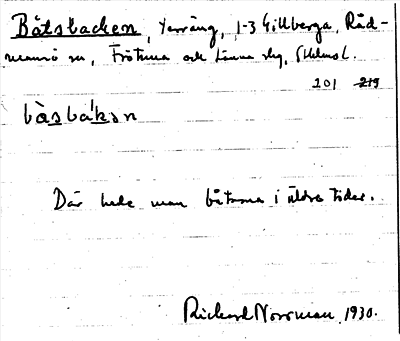 Båtsbacken, terräng, 1-3 Gillberga, Råd-
mansö sn, Frötuna och Länna skg, Sthlms l.
201 219
bàsbák̀ən
Där hade man båtarna i äldre tider.
Richard Norrman 1930.